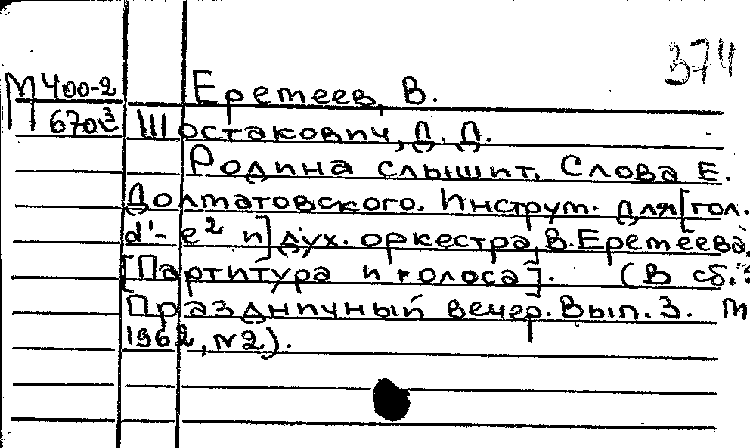 374
М 400-2 Еремеев, В.
670 Шостакович, Д. Д.
Родина слышит. Слова Е.
Долматовского. Инструм. для [гол.
d¹-e² и] дух. оркестра, В. Еремеева.
[Партитура и голоса]. (В сб.:
Праздничный вечер. Вып. 3. М
1962, N2).